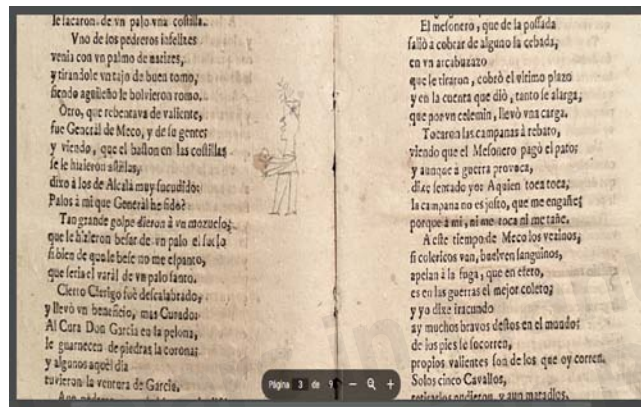 le sacaron de vn palo vna costilla.
Vno de los pedreros infelizes
venia con vn palmo de narizes,
y tirandole vn tajo de buen tomo,
siendo aguileño le bolvieron romo.
Otro, que rebentava de valiente,
fue General de Meco, y de su gente;
y viendo, que el baston en las costillas
se le hizieron astillas,
dixo à los de Alcalà muy sucudido:
Palos à mi que General he sido?
Tan grande golpe dieron à vn mozuelo;
que le hizieron besar de vn palo el suelo
si bien de que le bese no me espanto,
que seria el varàl de vn palo santo.
Cierto Clerigo fuè descalabrado,
y llevò vn beneficio, mas Curado:
Al Cura Don Garcia en la pelona,
le guarnecen de piedras la corona;
y algunos aquèl dia
tuvieron la ventura de Garcia,
El mesonero, que de la possada
saliò à cobrar de alguno la cebada,
en vn arcabuzazo
que le tiraron, cobrò el vltimo plazo
y en la cuenta que diò, tanto se alarga,
que por vn celemin, llevò vna carga.
Tocaron las campanas à rebato,
viendo que el Mesonero pagò el pato;
y aunque à guerra provoca,
dize sentado yo: A quien toca toca;
la campana no es justo, que me engañe;
porque à mi, ni me toca ni me tañe.
A este tiempo de Meco los vezinos,
si colericos van, buelven sanguinos,
apelan à la fuga, que en efeto,
es en las guerras el mejor coleto;
y yo dixe iracundo
ay muchos bravos destos en el mundo;
de los pies se socorren,
propios valientes son de los que oy corren.
Solos cinco Cavallos,
retirarlos pudieron, y aun matarlos,
Página 3 de 9